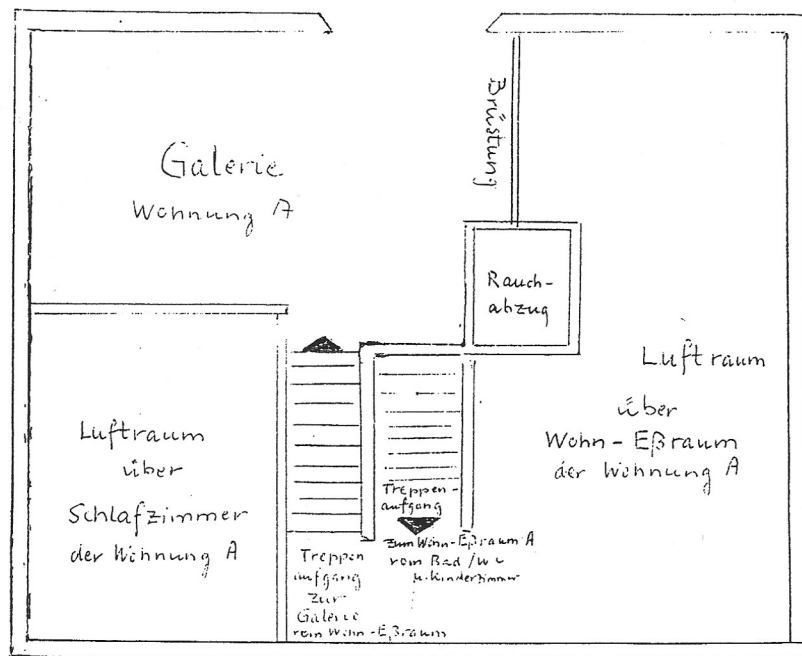 Brüstung
Galerie
Wohnung A
Rauch-
abzug
Luftraum
über
Wohn-Eßraum
der Wohnung A
Luftraum
über
Schlafzimmer
der Wohnung A
Treppen-
aufgang
zum Wohn-Eßraum A
vom Bad/WC
u. Kinderzimmer
Treppen
aufgang
zur
Galerie
vom Wohn-Eßraum